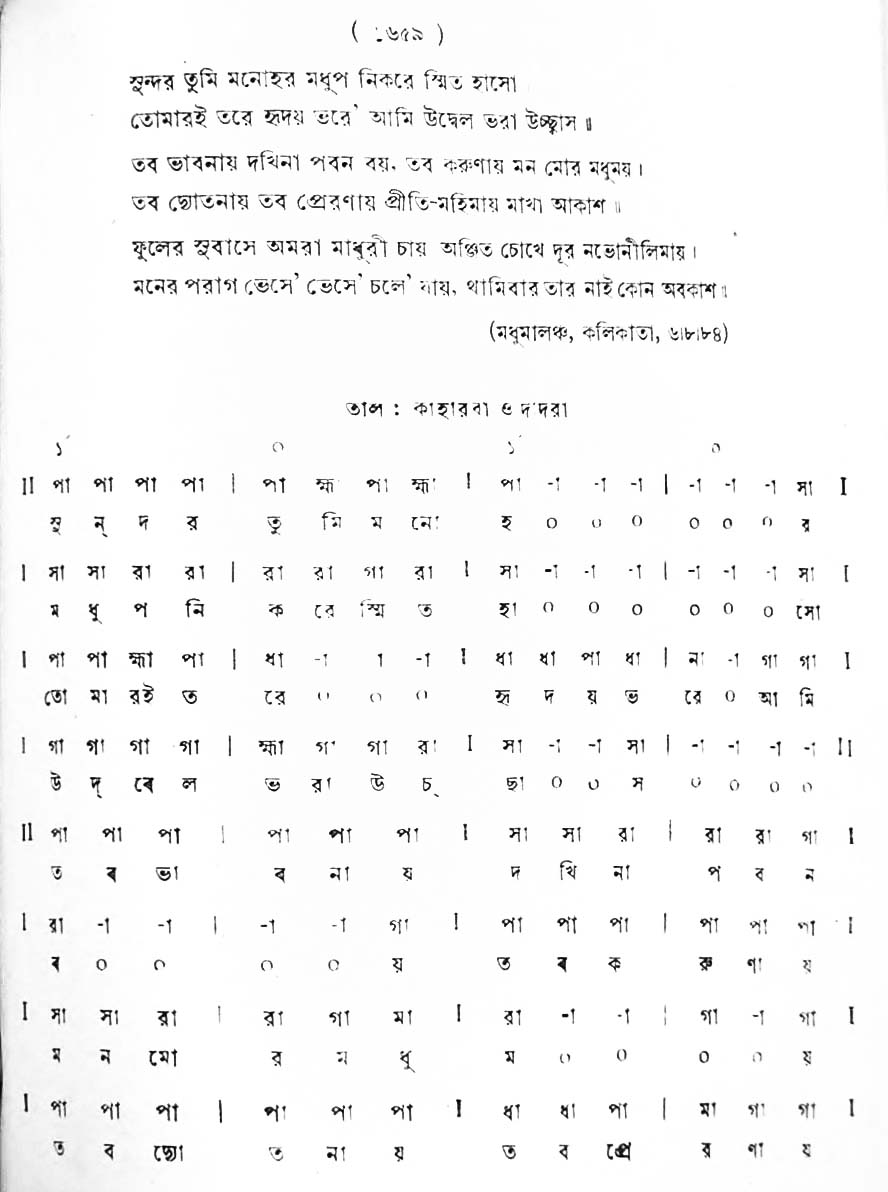 ( ১৬৫৯ )
সুন্দর তুমি মনোহর মধুপ নিকরে স্মিত হাসো
তোমারই তরে হৃদয় ভরে' আমি উদ্বেল ভরা উচ্ছ্বাস ॥
তব ভাবনায় দখিনা পবন বয়, তব করুণায় মন মোর মধুময় ।
তব দ্যোতনায় তব প্রেরণায় প্রীতি-মহিমায় মাখা আকাশ ॥
ফুলের সুবাসে অমরা মাধুরী চায় অঞ্জিত চোখে দূর নভোনীলিমায় ।
মনের পরাগ ভেসে' ভেসে' চলে' যায়, থামিবার তার নাই কোন অবকাশ ॥
(মধুমালঞ্চ, কলিকাতা, ৬।৮।৮৪)
তাল : কাহারবা ও দাদরা
১´ ০ ১´ ০
II পা পা পা পা | পা হ্মা পা হ্মা I পা -া -া -া | -া -া -া সা I
সু ন্ দ র তু মি ম নো হ ০ ০ ০ ০ ০ ০ র
I সা সা রা রা | রা রা গা রা I সা -া -া -া | -া -া -া সা I
ম ধু প নি ক রে স্মি ত হা ০ ০ ০ ০ ০ ০ সো
I পা পা হ্মা পা | ধা -া া -া I ধা ধা পা ধা | না -া গা গা I
তো মা রই ত রে ০ ০ ০ হৃ দ য় ভ রে ০ আ মি
I গা গা গা গা | হ্মা গা গা রা I সা -া -া সা | -া -া -া -া II
উ দ্ বে ল ভ রা উ চ্ ছা ০ ০ স ০ ০ ০ ০
II পা পা পা | পা পা পা I সা সা রা | রা রা গা I
ত ব ভা ব না য় দ খি না প ব ন
I রা -া -া | -া -া গা I পা পা পা | পা পা পা I
ব ০ ০ ০ ০ য় ত ব ক রু ণা য়
I সা সা রা | রা গা মা I রা -া -া | গা -া গা I
ম ন মো র ম ধু ম ০ ০ ০ ০ য়
I পা পা পা | পা পা পা I ধা ধা পা | মা গা গা I
ত ব দ্যো ত না য় ত ব প্রে র ণা য়